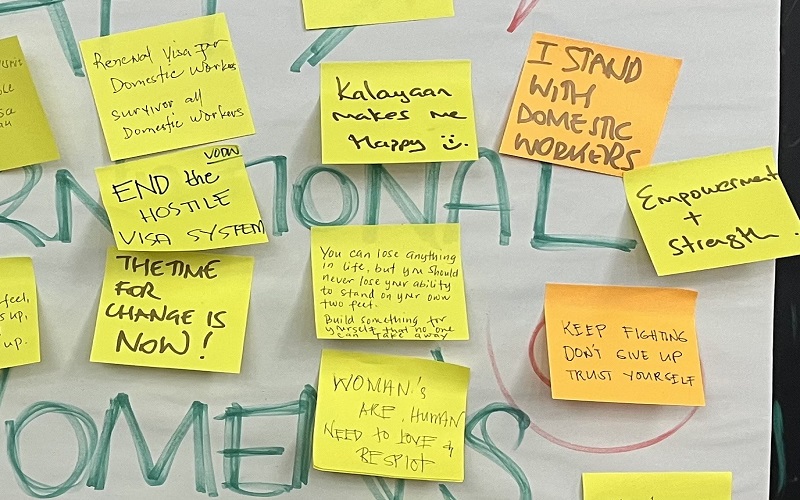 Renewal Visa for
Domestic Workes
survivor all
Domestic workers
VODW
END the
HOSTILE
VISA SYSTEM
THE TIME
FOR
CHANGE IS
NOW!
Kalayaan
makes me
Happy
You can lose anything
in life, but you should
never lose your ability
to stand on your own
two feet.
Build something for
yourself that no one
can take away
WOMAN's
ARE HUMAN
NEED TO LOVE &
RESPIOT
I STAND
WITH
DOMESTIC
WORKERS
Empowerment
+
Strength.
KEEP FIGHTING
DON'T GIVE UP
TRUST YOURSELF
feel,
up,
up.
RNATIONAL
OMEN'S